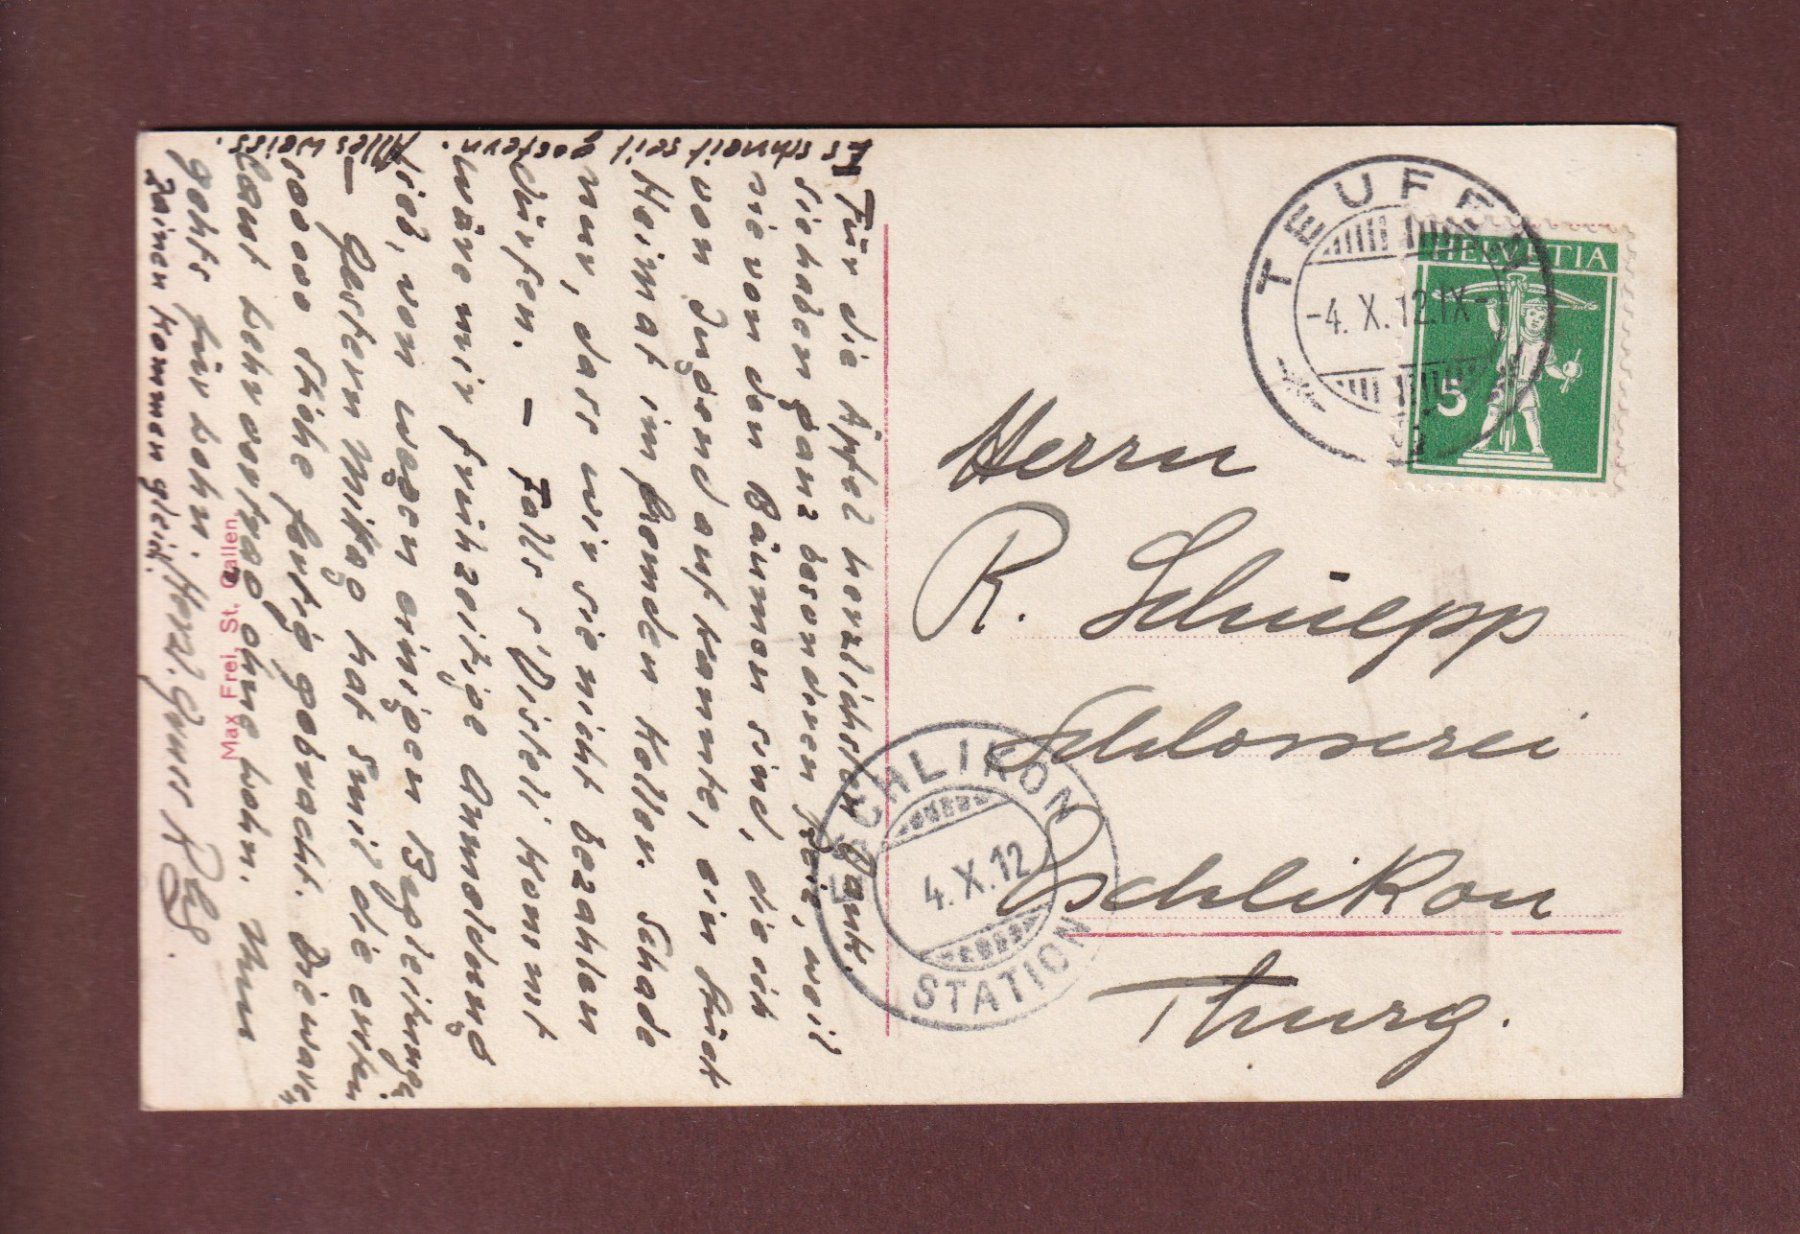 Es schneit seit gestern. Alles weiss.
Für die Äpfel herzlichsten Dank.
Sie haben ganz besonderen Reiz, weil
sie von den Bäumen sind, die ich
von Jugend auf kannte, ein Stück
Heimat im fremden Keller. Schade
nur, dass wir sie nicht bezahlen
dürfen. – Falls s'Disteli kommt
wäre mir frühzeitige Anmeldung
lieb, von wegen einigen Begleitungen
– Gestern Mittag hat Emil die ersten
Stühle fertig gebracht. Die
laut Lehrvertrag ohne Lohn. Nun
gehts für Lohn. Herzl. Gruss
Zainen kommen gleich.
Max Frei, St. Gallen.
TEUFEN
-4. X. 12. IX-
HELVETIA
5
Herrn
R. Schnepp
Schlosserei
Eschlikon
Thurg.
ESCHLIKON
4. X. 12
STATION